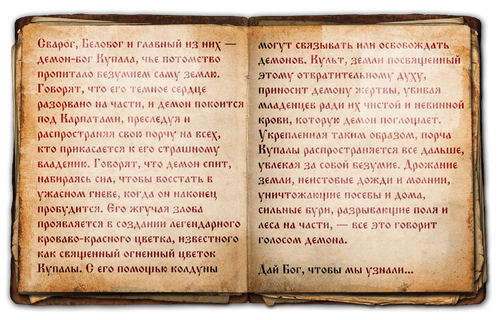 Сварог, Белобог и главный из них —
демон-бог Купала, чье потомство
пропитало безумием саму землю.
Говорят, что его темное сердце
разорвано на части, и демон покоится
под Карпатами, преследуя и
распространяя свою порчу на всех,
кто прикасается к его страшному
владению. Говорят, что демон спит,
набираясь сил, чтобы восстать в
ужасном гневе, когда он наконец
пробудится. Его жгучая злоба
проявляется в создании легендарного
кроваво-красного цветка, известного
как священный огненный цветок
Купалы. С его помощью колдуны
могут связывать или освобождать
демонов. Культ, земли посвященный
этому отвратительному духу,
приносит демону жертвы, убивая
младенцев ради их чистой и невинной
крови, которую демон поглощает.
Укрепленная таким образом, порча
Купалы распространяется все дальше,
увлекая за собой безумие. Дрожание
земли, неистовые дожди и молнии,
уничтожающие посевы и дома,
сильные бури, разрывающие поля и
леса на части, — все это говорит
голосом демона.
Дай Бог, чтобы мы узнали...